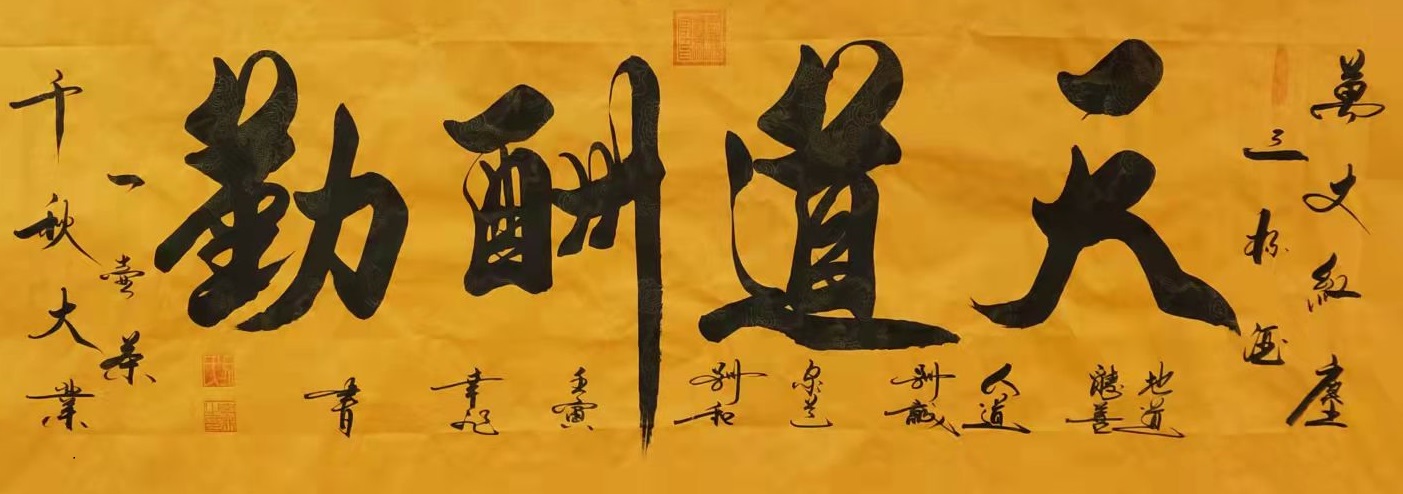 萬丈紅塵
三杯酒
天道酬勤
地道酬善
人道酬誠
家道酬和
壬寅
書
千秋大業
一壺茶